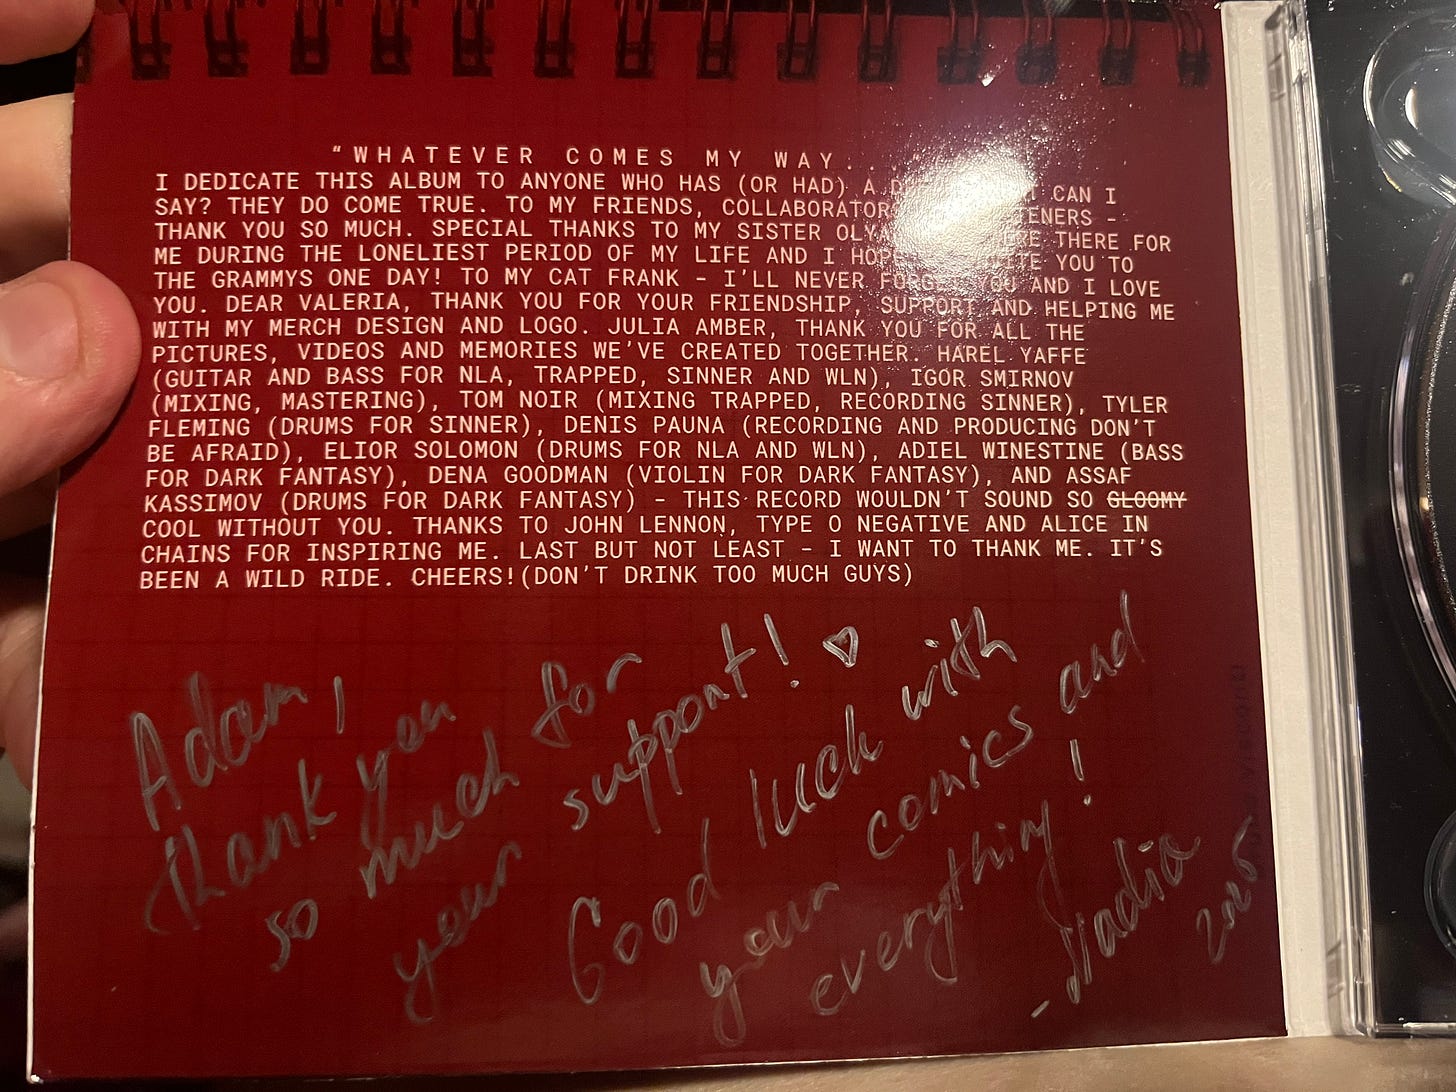 "WHATEVER COMES MY WAY...
I DEDICATE THIS ALBUM TO ANYONE WHO HAS (OR HAD) A CAN I
SAY? THEY DO COME TRUE. TO MY FRIENDS, COLLABORATOR
THANK YOU SO MUCH. SPECIAL THANKS TO MY SISTER THERE FOR
ME DURING THE LONELIEST PERIOD OF MY LIFE AND I YOU TO
THE GRAMMYS ONE DAY! TO MY CAT FRANK - I'LL NEVER FORGET YOU AND I LOVE
YOU. DEAR VALERIA, THANK YOU FOR YOUR FRIENDSHIP, SUPPORT AND HELPING ME
WITH MY MERCH DESIGN AND LOGO. JULIA AMBER, THANK YOU FOR ALL THE
PICTURES, VIDEOS AND MEMORIES WE'VE CREATED TOGETHER. HAREL YAFFE
(GUITAR AND BASS FOR NLA, TRAPPED, SINNER AND WLN), IGOR SMIRNOV
(MIXING, MASTERING), TOM NOIR (MIXING TRAPPED, RECORDING SINNER), TYLER
FLEMING (DRUMS FOR SINNER), DENIS PAUNA (RECORDING AND PRODUCING DON'T
BE AFRAID), ELIOR SOLOMON (DRUMS FOR NLA AND WLN), ADIEL WINESTINE (BASS
FOR DARK FANTASY), DENA GOODMAN (VIOLIN FOR DARK FANTASY), AND ASSAF
KASSIMOV (DRUMS FOR DARK FANTASY) - THIS RECORD WOULDN'T SOUND SO GLOOMY
COOL WITHOUT YOU. THANKS TO JOHN LENNON, TYPE O NEGATIVE AND ALICE IN
CHAINS FOR INSPIRING ME. LAST BUT NOT LEAST - I WANT TO THANK ME. IT'S
BEEN A WILD RIDE. CHEERS!(DON'T DRINK TOO MUCH GUYS)
Adam,
thank you
so much for
your support! ♡
Good luck with
your comics and
everything!
- Nadia
2025